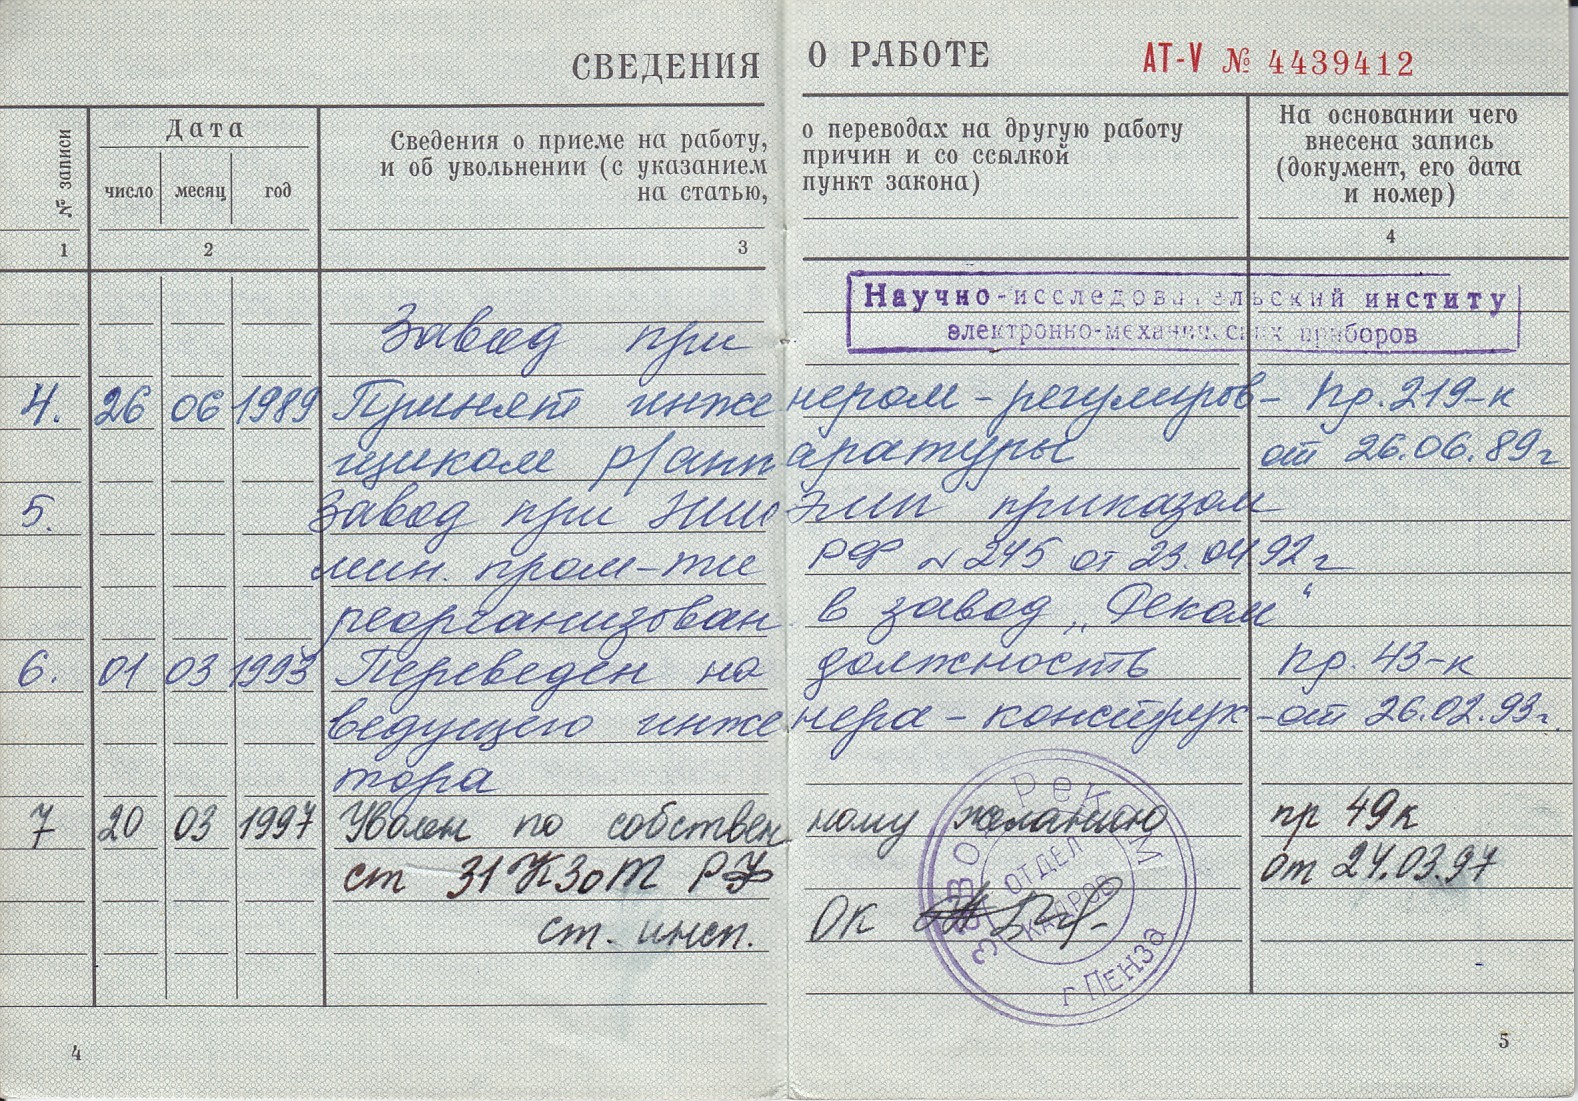 СВЕДЕНИЯ О РАБОТЕ АТ-V № 4439412
№ записи
Дата
число месяц год
Сведения о приеме на работу, о переводах на другую работу
и об увольнении (с указанием причин и со ссылкой
на статью, пункт закона)
На основании чего
внесена запись
(документ, его дата
и номер)
1 2 3 4
Научно-исследовательский институт
электронно-механических приборов
Завод при
4. 26 06 1989 Принят инженером-регулиров- Пр. 219-к
щиком р/аппаратуры от 26.06.89г
5. Завод при НИИЭМП приказом
мин. пром-ти РФ № 245 от 23.04.92г
реорганизован в завод „Реком“
6. 01 03 1993 Переведен на должность Пр. 43-к
ведущего инженера-конструк- от 26.02.93г.
тора
7 20 03 1997 Уволен по собственному желанию пр 49к
ст 31 КЗоТ РФ от 24.03.97
ст. инсп. ОК
Завод Реком
ОТДЕЛ
КАДРОВ
г Пенза
4
5